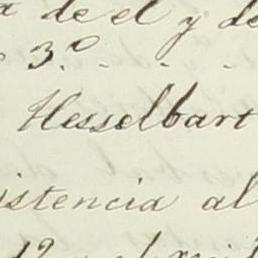 a de el y de
3.º - - -
Hesselbart
istencia al